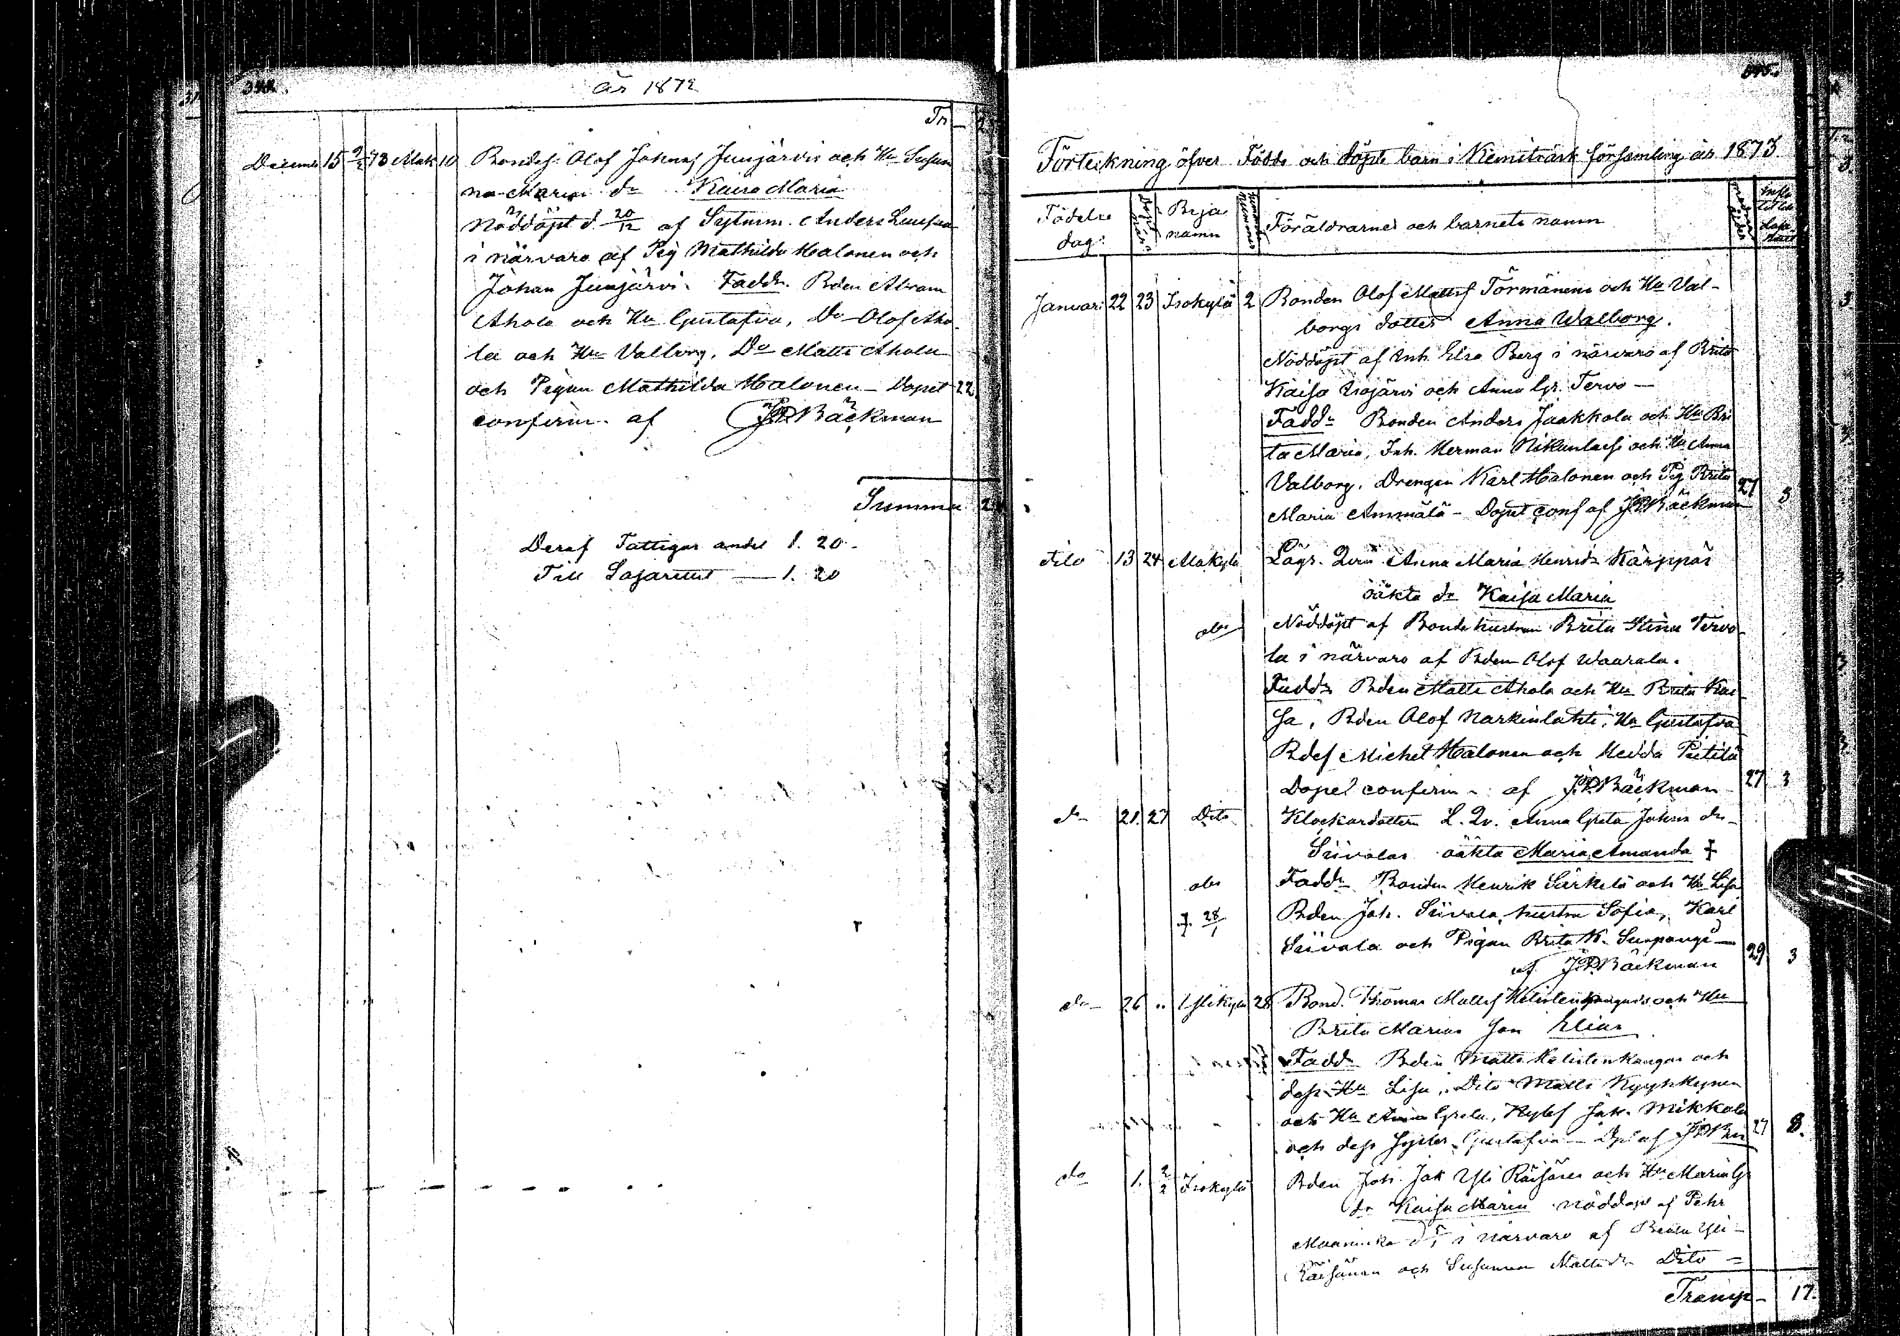 344.
år 1872
Tr. —
December 15 2/2 73 Alak. 10 Bondes. Olof Johans Junjärvis och Hu Susan
na Maria dr Kaisa Maria
Nöddöpt d. 20/12 af Sytnm. Anders
i närvaro af Pig Mathilda Halonen och
Johan Junjärvi. Faddr. Bden Abram
Ahola och Hu Gustafva, Do Olof Aho-
la och Hu Valborg. Do Matts Ahola
och Pigan Mathilda Halonen — Dopet 22
confirm. af JPBäckman
Summa
Deraf Fattigas andel 1. 20.
Till Lasarettet — 1. 20
345.
Förteckning öfver Födde och döpte barn i Kemiträsk församling år 1873
Födelse dag. Byar namn Föräldrarnes och barnets namn
Januari 22 23 Isokylä 2 Bonden Olof Matts Törmänens och Hu Val-
borgs dotter Anna Walborg.
Nöddöpt af Inh. Elsa Berg i närvaro af Brita
Kaisa Isojärvi och Anna Gr. Tervo —
Faddr Bonden Anders Jaakkola och Hu Bri
ta Maria, Inh. Herman och Hu Anna
Valborg, Drengen Karl Halonen och Pig Brita 27
Maria Ämmälä — Dopet conf af JPBäckman 3
dito 13 24 Alakylä Lägr. Qvin Anna Maria Henrids Kärppäs
oäkta dr Kaisa Maria
Nöddöpt af Bondehustrun Brita Stina Tervo-
la i närvaro af Bden Olof Waarala.
Faddr Bden Matts Ahola och Hu Brita Kai
sa, Bden Olof Narkinlahti, Hu Gustafva
Bdes Michel Halonen och Hedda Pietilä
Dopet confirm. af JPBäckman 27 3
do 21. 27 Dito Klockardottern L. Qv. Anna Greta Johns dr
Siivolas oäkta Maria Amanda †
Faddr Bonden Henrik Särkelä och Hu Lisa
† 28/1 Bden Joh. Siivola, hustru Sofia, Karl
Siivola och Pigan Brita K. 29 3
af JPBäckman
do 26 .. Ylikylä 28 Bond. Thomas Matts och Hu
Brita Marias son Elias
Faddr Bden Matts Kelistenkangas och
dess Hu Lisa, Dito Matts Kyykkynen
och Hu Anna Greta, Joh. Mikkola 27 3.
och dess syster Gustafva — Dpt af JPBn
do 1. 2/2 Isokylä Bden Joh. Jak Yli Räisänen och Hu Maria Gr
dr Kaisa Maria nöddöpt af Pehr
i närvaro af Brita Yli-
Räisänen och Susanna Matts dr Dito =
Transp — 17.